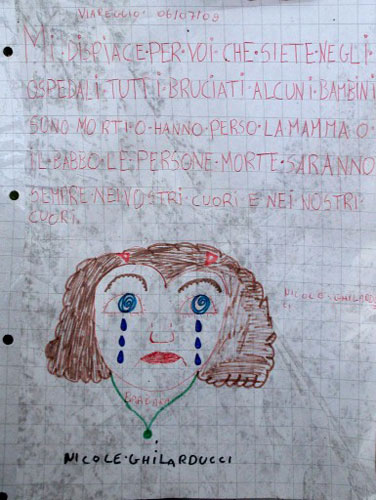 VIAREGGIO· 06/07/09
MI·DISPIACE·PER·VOI·CHE·SIETE·NEGLI·
OSPEDALI·TUTTI·BRUCIATI·ALCUNI·BAMBINI
SUNO·MORTI·O·HANNO·PERSO·LA·MAMMA·O·
IL·BABBO·LE·PERSONE·MORTE·SARANNO
SEMPRE·NEI·VOSTRI·CUORI·E·NEI·NOSTRI·
CUORI.
NICOLE·GHILARD
NICOLE·GHILARDUCCI